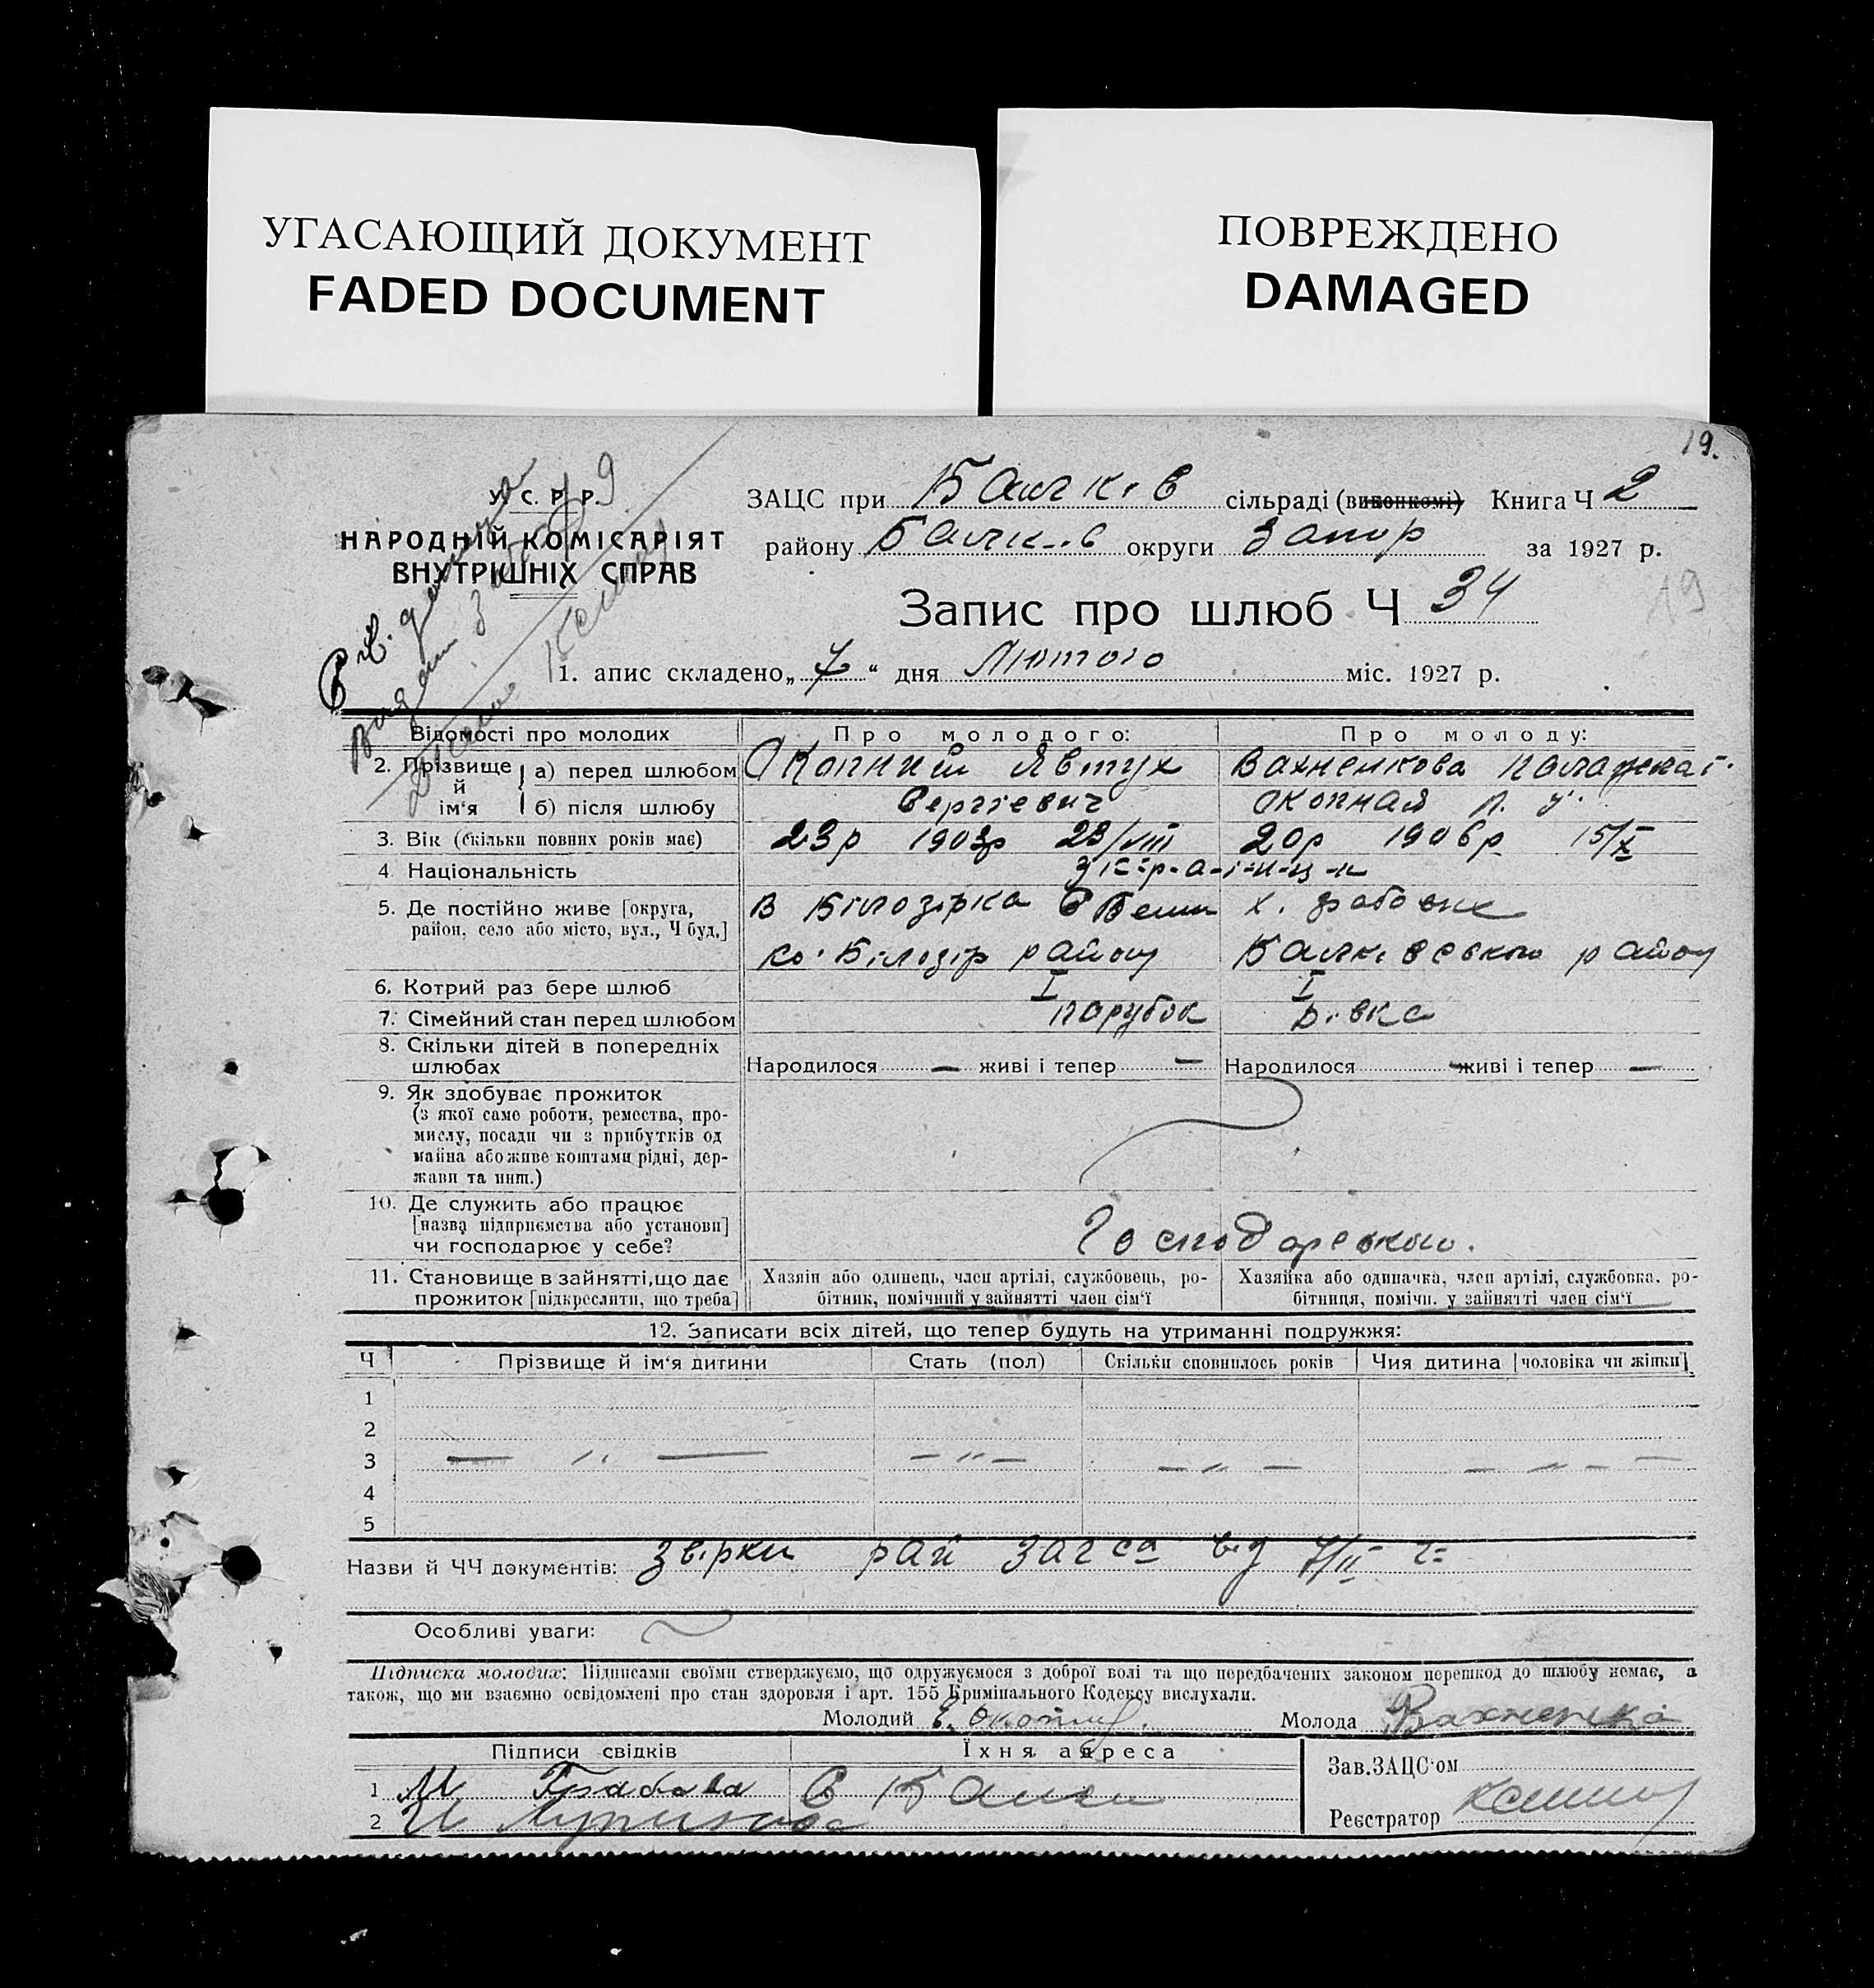 УГАСАЮЩИЙ ДОКУМЕНТ
FADED DOCUMENT
ПОВРЕЖДЕНО
DAMAGED
19.
У. С. Р. Р.
НАРОДНІЙ КОМІСАРІЯТ
ВНУТРІШНІХ СПРАВ
ЗАЦС при Балків сільраді (виконкомі) Книга Ч 2
району Балків округи Запор за 1927 р.
Запис про шлюб Ч 34
19
1. апис складено „7“ дня Лютого міс. 1927 р.
Відомості про молодих Про молодого: Про молоду:
2. Прізвище й ім‘я а) перед шлюбом Окопний Явтух Вахненкова
б) після шлюбу Сергієвич Окопная
3. Вік (скільки повних років має) 23р 1903р 23/VIII 20р 1906р 15/X
4. Національність
5. Де постійно живе [округа, район, село або місто, вул., Ч буд.] В Білозірка х.
Білозір району Балківського району
6. Котрий раз бере шлюб I I
7. Сімейний стан перед шлюбом парубок Дівка
8. Скільки дітей в попередніх шлюбах Народилося — живі і тепер — Народилося — живі і тепер —
9. Як здобуває прожиток
(з якої саме роботи, ремества, про-
мислу, посади чи з прибутків од
майна або живе коштами рідні, дер-
жави та инш.)
10. Де служить або працює
[назва підприємства або установи]
чи господарює у себе? Господарською.
11. Становище в зайнятті, що дає прожиток [підкреслити, що треба]
Хазяїн або одинець, член артілі, службовець, ро-
бітник, помічний у зайнятті член сім‘ї
Хазяйка або одиначка, член артілі, службовка, ро-
бітниця, помічн. у зайнятті член сім‘ї
12. Записати всіх дітей, що тепер будуть на утриманні подружжя:
Ч Прізвище й ім‘я дитини Стать (пол) Скільки сповнилось років Чия дитина [чоловіка чи жінки]
1
2
3 — „ — — „ — — „ — — „ —
4
5
Назви й ЧЧ документів: Звірки рай загса від 7/II
Особливі уваги:
Підписка молодих: Підписами своїми стверджуємо, що одружуємося з доброї волі та що передбачених законом перешкод до шлюбу немає, а
також, що ми взаємно освідомлені про стан здоровля і арт. 155 Кримінального Кодексу вислухали.
Молодий Молода Вахненка
Підписи свідків Їхня адреса Зав.ЗАЦС‘ом
1 М Грабова С Балки
2 Реєстратор